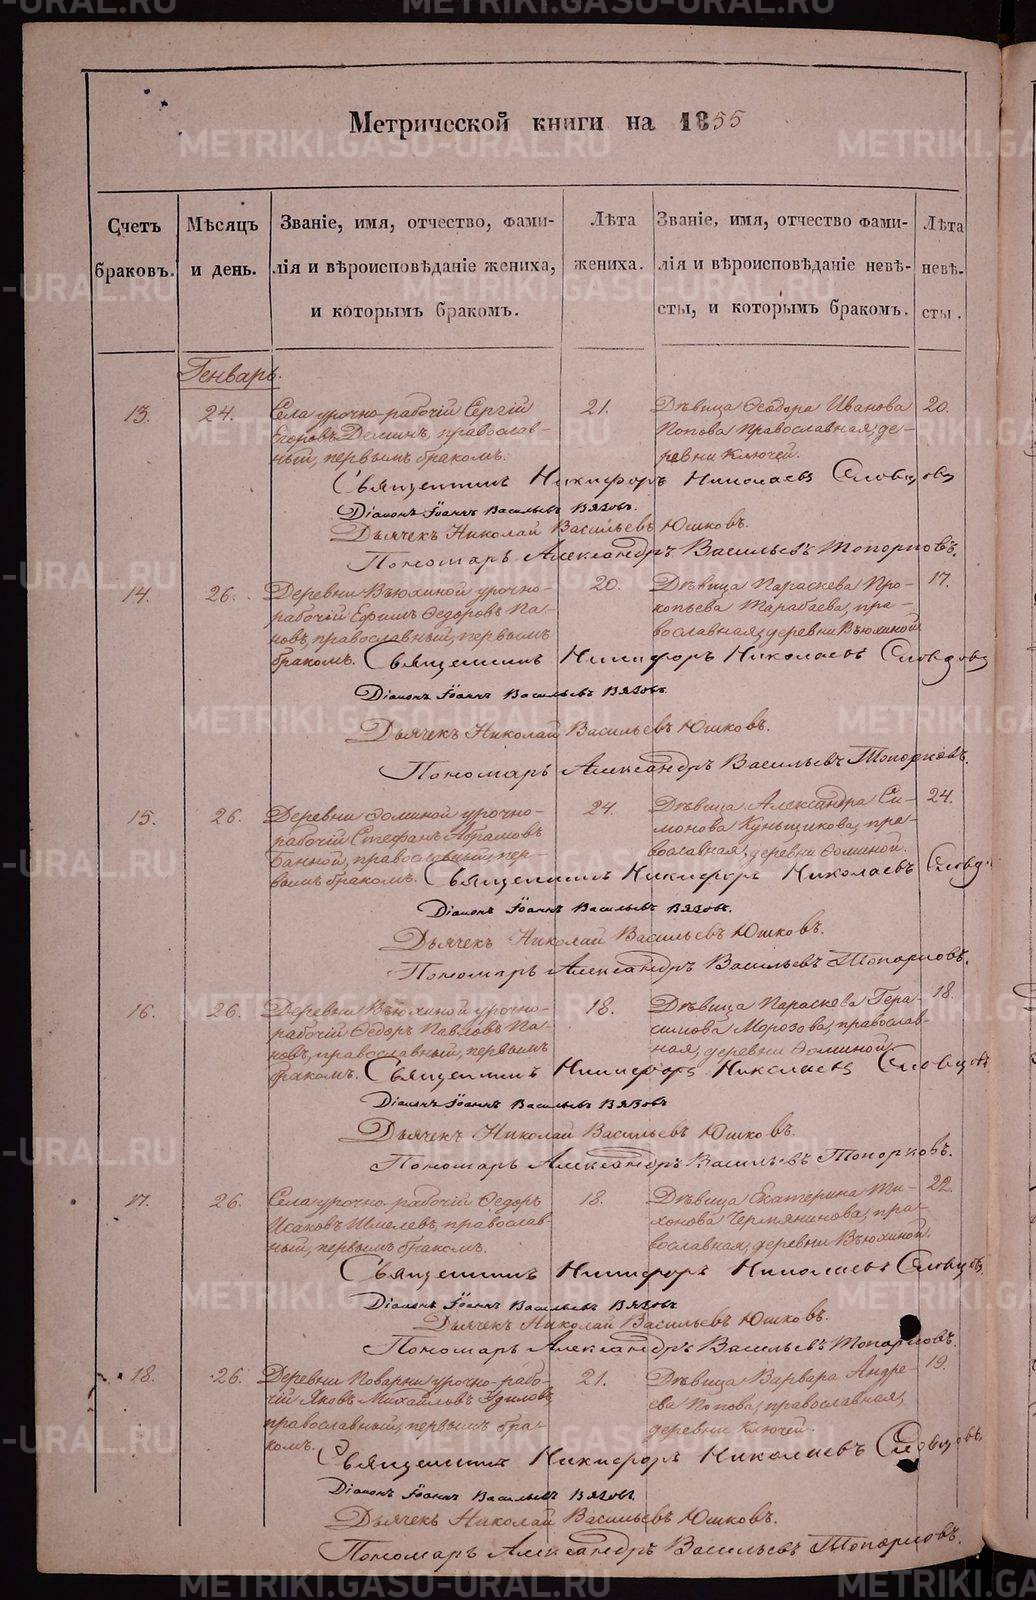 Метрической книги на 1855
Счетъ браковъ.
Мѣсяцъ и день.
Званіе, имя, отчество, фами-
лія и вѣроисповѣданіе жениха,
и которымъ бракомъ.
Лѣта
жениха.
Званіе, имя, отчество фами-
лія и вѣроисповѣданіе невѣ-
сты, и которымъ бракомъ.
Лѣта
невѣ-
сты.
Генварь.
13. 24. Села урочно-рабочій Сергій 21. Дѣвица Ѳеодора Иванова 20.
Егоровъ Деминъ, православ- Попова православная, де-
ный, первымъ бракомъ. ревни Ключей.
Священникъ Никифоръ Николаевъ Словцовъ
Діаконъ Іоаннъ Васильевъ Вязовъ.
Дьячекъ Николай Васильевъ Юшковъ.
Пономарь Александръ Васильевъ Топорковъ.
14. 26. Деревни Вьюхиной урочно- 20. Дѣвица Параскева Про- 17.
рабочій Ефимъ Ѳедоровъ Па- копьева Тарабаева, пра-
новъ, православный, первымъ вославная, деревни Вьюхиной
бракомъ. Священникъ Никифоръ Николаевъ Словцовъ
Діаконъ Іоаннъ Васильевъ Вязовъ.
Дьячекъ Николай Васильевъ Юшковъ.
Пономарь Александръ Васильевъ Топорковъ.
15. 26. Деревни Ѳоминой урочно- 24. Дѣвица Александра Си- 24.
рабочій Стефанъ Абрамовъ монова Куньщикова, пра-
Банной, православный, пер- вославная, деревни Ѳоминой.
вымъ бракомъ. Священникъ Никифоръ Николаевъ Словцо
Діаконъ Іоаннъ Васильевъ Вязовъ.
Дьячекъ Николай Васильевъ Юшковъ.
Пономарь Александръ Васильевъ Топорковъ.
16. 26. Деревни Вьюхиной урочно- 18. Дѣвица Параскева Гера- 18.
рабочій Ѳедоръ Павловъ Па- симова Морозова, православ-
новъ, православный, первымъ ная, деревни Ѳоминой.
бракомъ. Священникъ Никифоръ Николаевъ Словцовъ
Діаконъ Іоаннъ Васильевъ Вязовъ
Дьячекъ Николай Васильевъ Юшковъ.
Пономарь Александръ Васильевъ Топорковъ.
17. 26. Села урочно-рабочій Ѳедоръ 18. Дѣвица Екатерина Ти- 22.
Исаковъ Шмелевъ, православ- хонова Чермянинова, пра-
ный, первымъ бракомъ. вославная, деревни Вьюхиной.
Священникъ Никифоръ Николаевъ Словцовъ.
Діаконъ Іоаннъ Васильевъ Вязовъ
Дьячекъ Николай Васильевъ Юшковъ.
Пономарь Александръ Васильевъ Топорковъ.
18. 26. Деревни Поварни урочно-рабо- 21. Дѣвица Варвара Андре- 19.
чій Яковъ Михайловъ Удиловъ, ева Попова, православная,
православный, первымъ бра- деревни Ключей.
комъ. Священникъ Никифоръ Николаевъ Словцовъ
Діаконъ Іоаннъ Васильевъ Вязовъ.
Дьячекъ Николай Васильевъ Юшковъ.
Пономарь Александръ Васильевъ Топорковъ.
METRIKI.GASO-URAL.RU